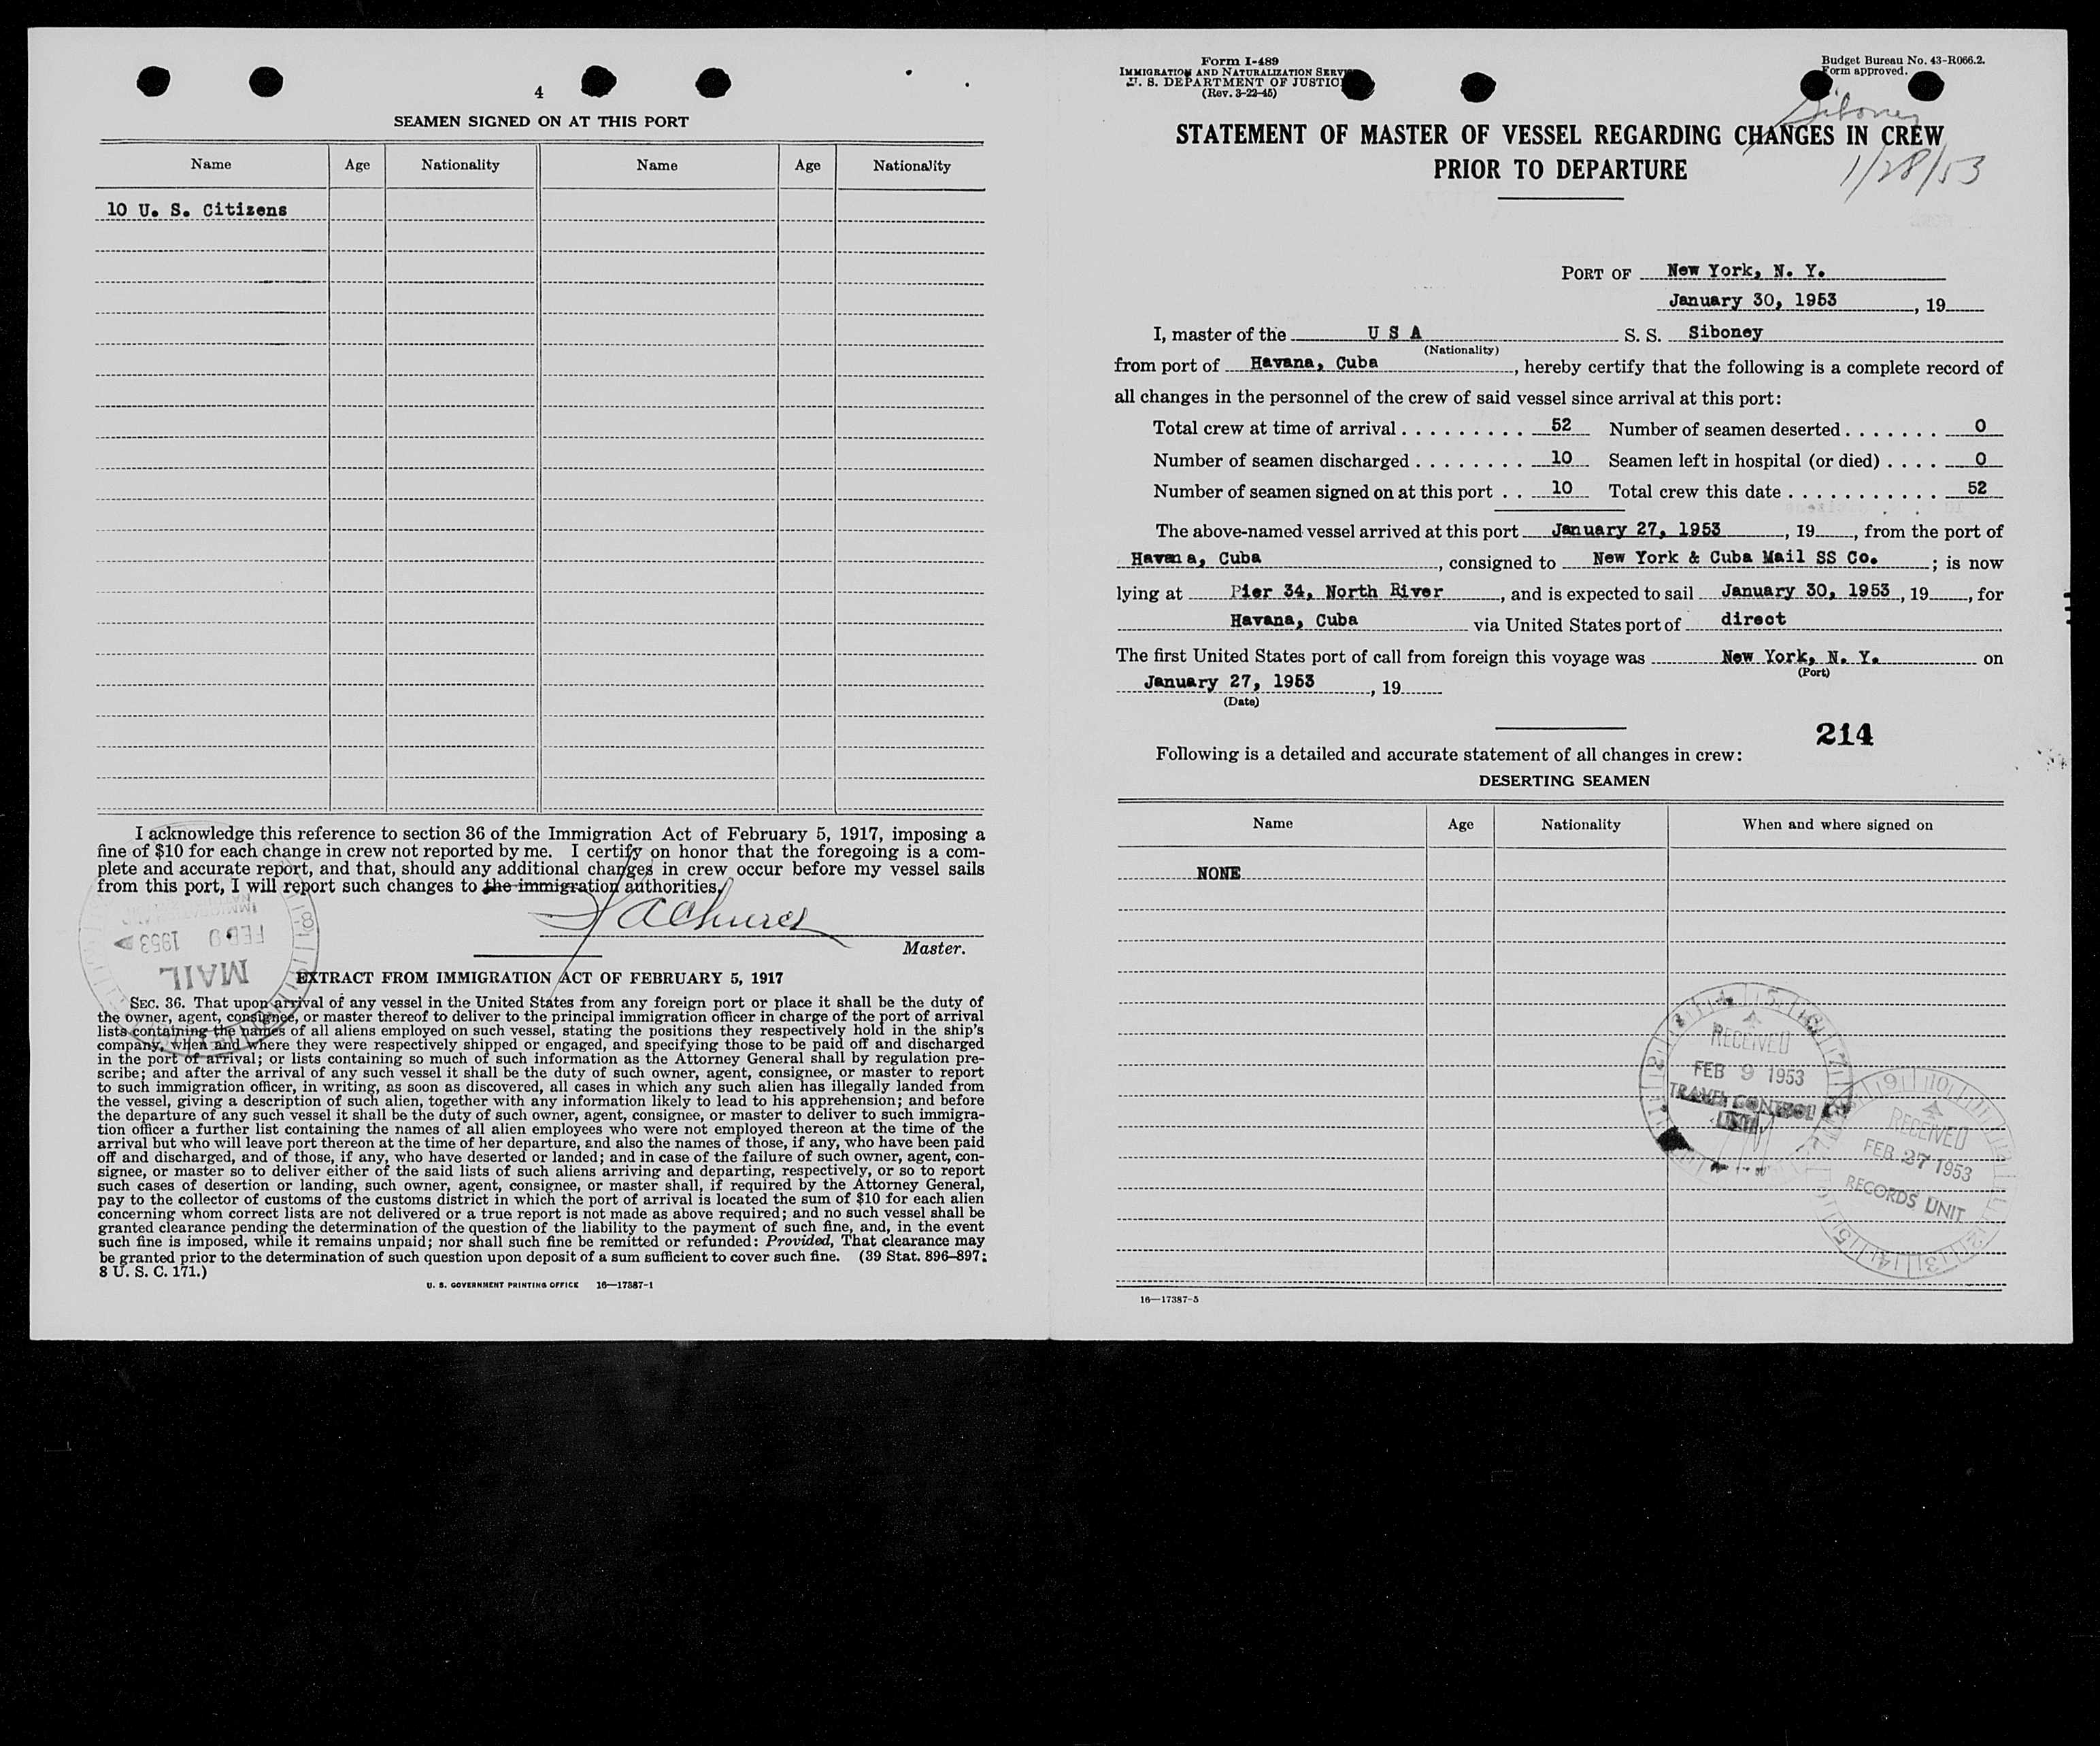 4
SEAMEN SIGNED ON AT THIS PORT
Name Age Nationality Name Age Nationality
10 U. S. Citizens
I acknowledge this reference to section 36 of the Immigration Act of February 5, 1917, imposing a
fine of $10 for each change in crew not reported by me. I certify on honor that the foregoing is a com-
plete and accurate report, and that, should any additional changes in crew occur before my vessel sails
from this port, I will report such changes to the immigration authorities.
Master.
FEB 9 1953
MAIL
EXTRACT FROM IMMIGRATION ACT OF FEBRUARY 5, 1917
SEC. 36. That upon arrival of any vessel in the United States from any foreign port or place it shall be the duty of
the owner, agent, consignee, or master thereof to deliver to the principal immigration officer in charge of the port of arrival
lists containing the names of all aliens employed on such vessel, stating the positions they respectively hold in the ship's
company, when and where they were respectively shipped or engaged, and specifying those to be paid off and discharged
in the port of arrival; or lists containing so much of such information as the Attorney General shall by regulation pre-
scribe; and after the arrival of any such vessel it shall be the duty of such owner, agent, consignee, or master to report
to such immigration officer, in writing, as soon as discovered, all cases in which any such alien has illegally landed from
the vessel, giving a description of such alien, together with any information likely to lead to his apprehension; and before
the departure of any such vessel it shall be the duty of such owner, agent, consignee, or master to deliver to such immigra-
tion officer a further list containing the names of all alien employees who were not employed thereon at the time of the
arrival but who will leave port thereon at the time of her departure, and also the names of those, if any, who have been paid
off and discharged, and of those, if any, who have deserted or landed; and in case of the failure of such owner, agent, con-
signee, or master so to deliver either of the said lists of such aliens arriving and departing, respectively, or so to report
such cases of desertion or landing, such owner, agent, consignee, or master shall, if required by the Attorney General,
pay to the collector of customs of the customs district in which the port of arrival is located the sum of $10 for each alien
concerning whom correct lists are not delivered or a true report is not made as above required; and no such vessel shall be
granted clearance pending the determination of the question of the liability to the payment of such fine, and, in the event
such fine is imposed, while it remains unpaid; nor shall such fine be remitted or refunded: Provided, That clearance may
be granted prior to the determination of such question upon deposit of a sum sufficient to cover such fine. (39 Stat. 896–897;
8 U. S. C. 171.)
U. S. GOVERNMENT PRINTING OFFICE 16—17387-1
Form I-489
IMMIGRATION AND NATURALIZATION SERV
U. S. DEPARTMENT OF JUSTIC
(Rev. 3-22-45)
Budget Bureau No. 43-R066.2.
Form approved.
Siboney
STATEMENT OF MASTER OF VESSEL REGARDING CHANGES IN CREW
PRIOR TO DEPARTURE
1/28/53
PORT OF New York, N. Y.
January 30, 1953, 19
I, master of the U S A S. S. Siboney
(Nationality)
from port of Havana, Cuba, hereby certify that the following is a complete record of
all changes in the personnel of the crew of said vessel since arrival at this port:
Total crew at time of arrival . . . . . . . . . . 52 Number of seamen deserted . . . . . . . 0
Number of seamen discharged . . . . . . . . 10 Seamen left in hospital (or died) . . . . 0
Number of seamen signed on at this port . . 10 Total crew this date . . . . . . . . . . . . 52
The above-named vessel arrived at this port January 27, 1953, 19, from the port of
Havana, Cuba, consigned to New York & Cuba Mail SS Co.; is now
lying at Pier 34, North River, and is expected to sail January 30, 1953, 19, for
Havana, Cuba via United States port of direct
The first United States port of call from foreign this voyage was New York, N. Y. on
(Port)
January 27, 1953, 19
(Date)
214
Following is a detailed and accurate statement of all changes in crew:
DESERTING SEAMEN
Name Age Nationality When and where signed on
NONE
RECEIVED
FEB 9 1953
TRAVEL CONTROL
UNIT
RECEIVED
FEB 27 1953
RECORDS UNIT
16—17387-5